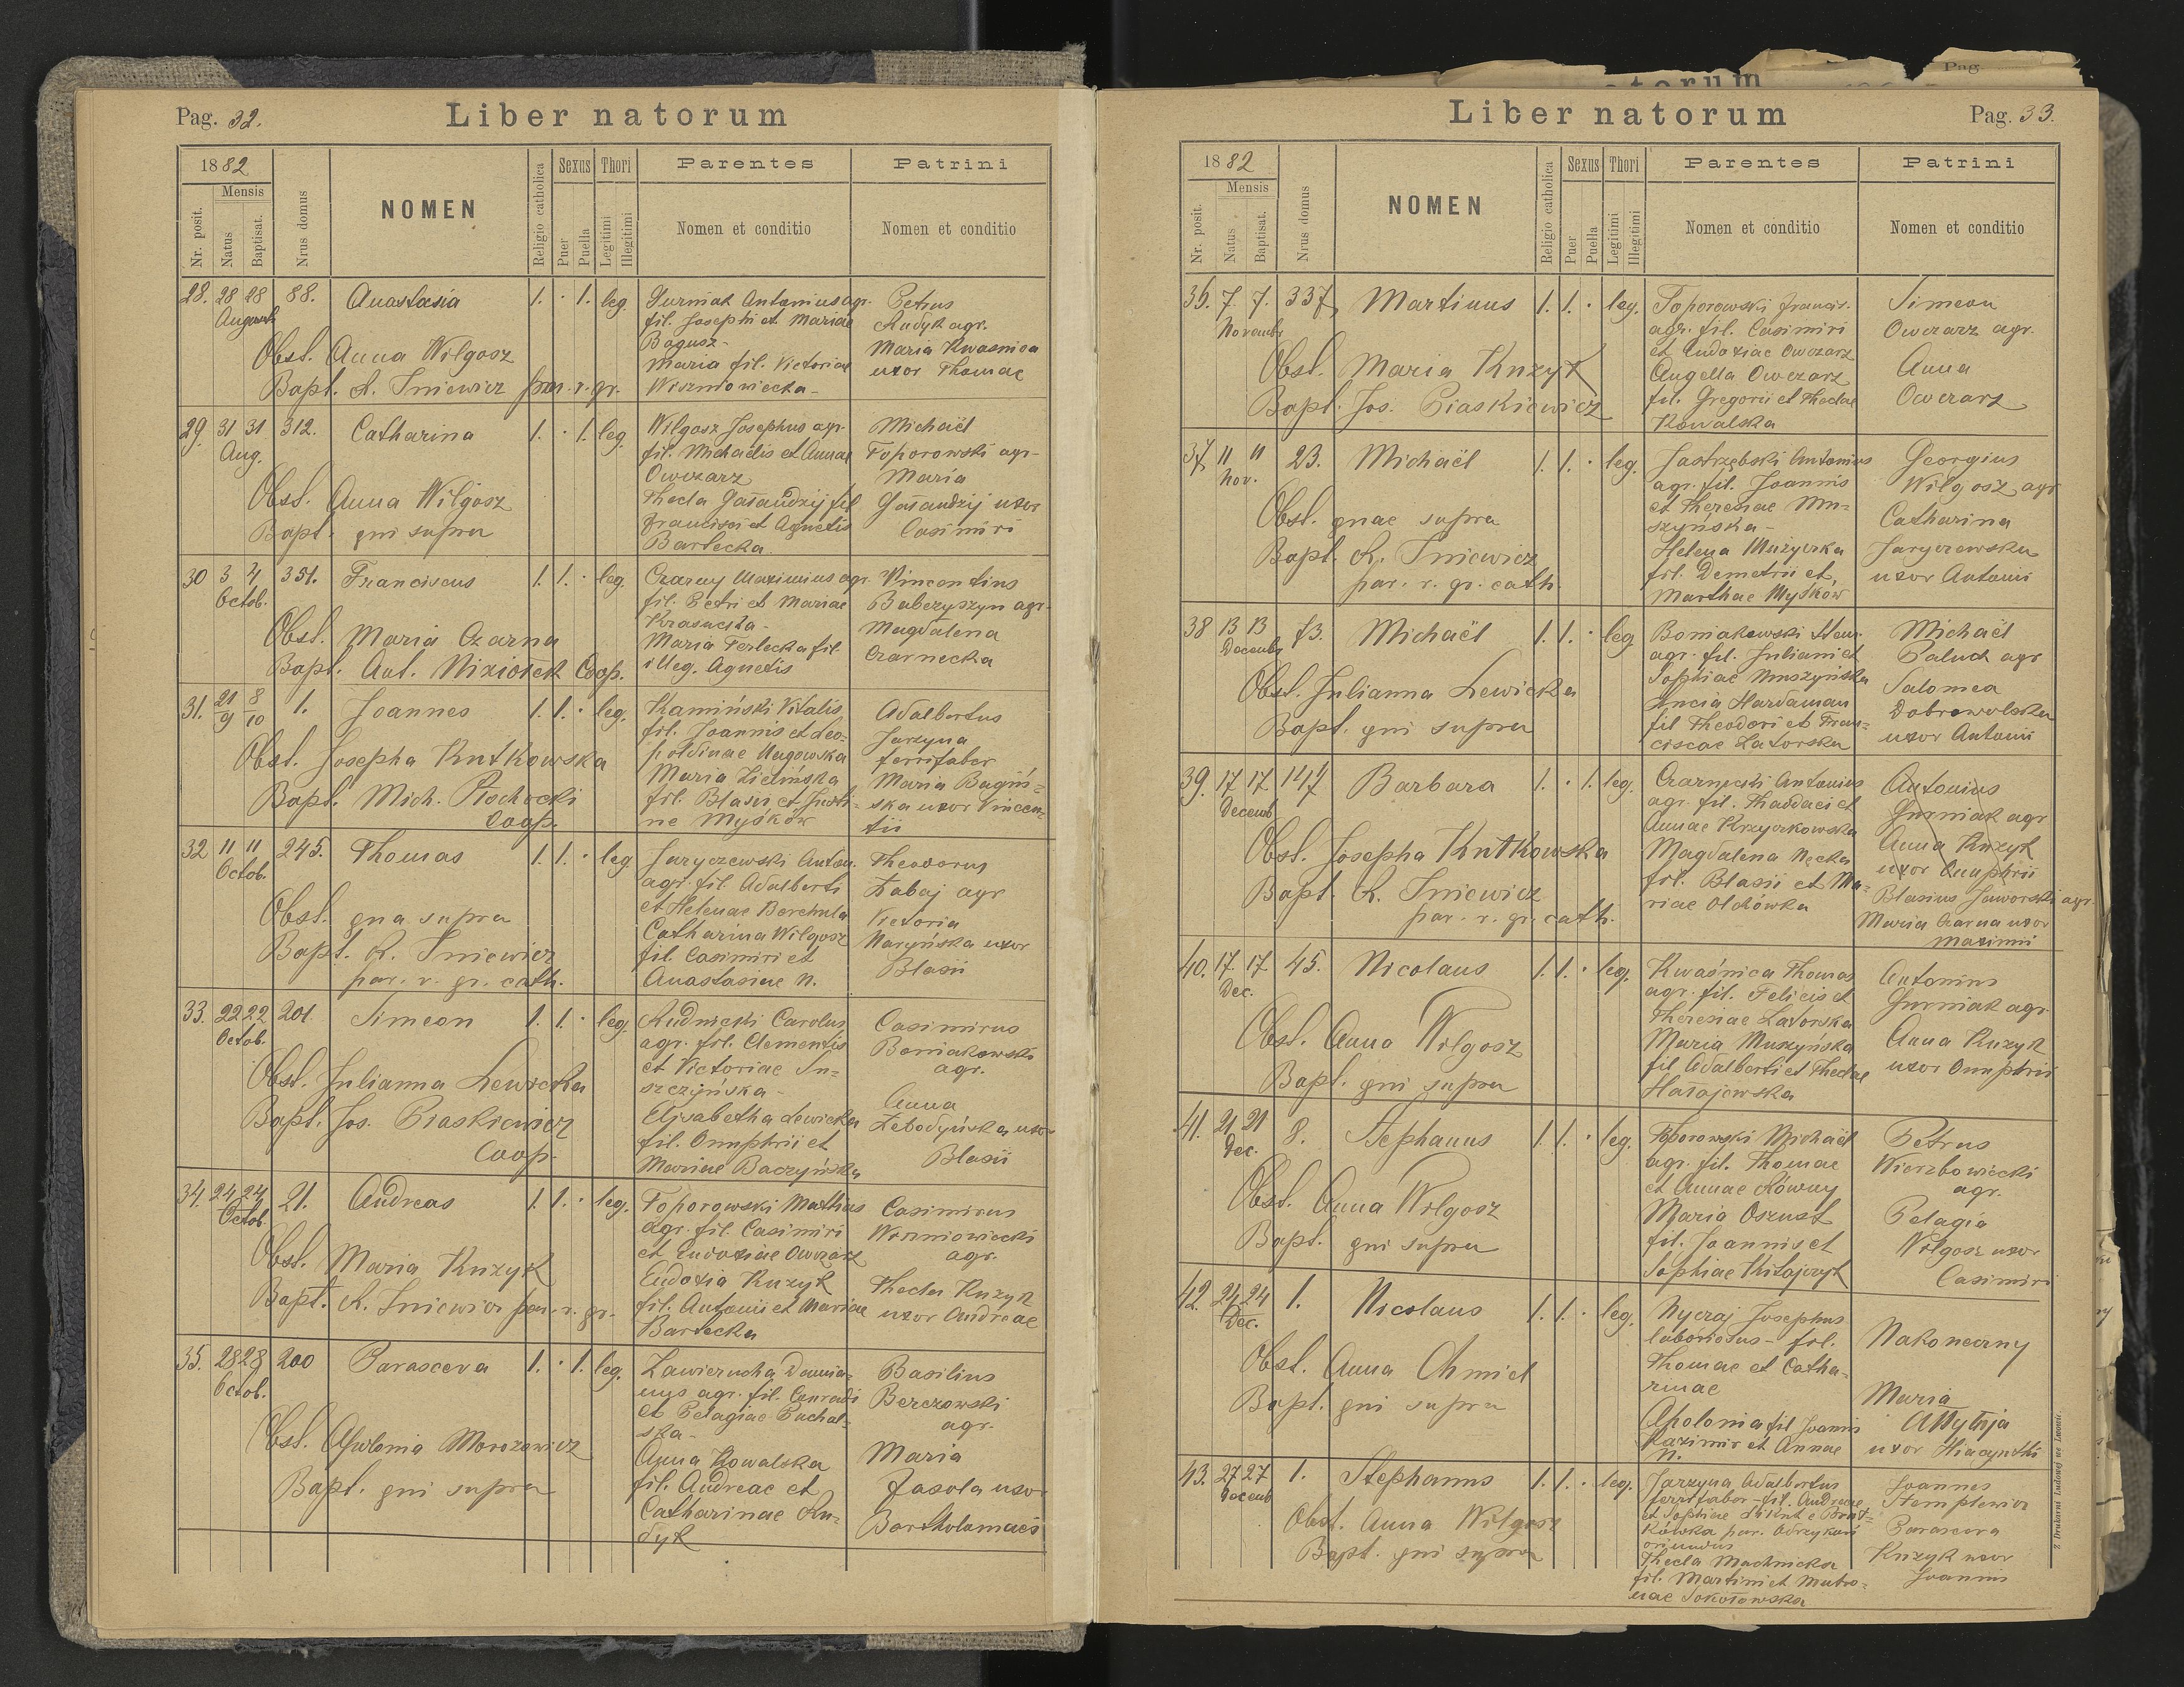 Pag. 32.
Liber natorum
1882
Mensis
Nr. posit.
Natus
Baptisat.
Nrus domus
NOMEN
Religio catholica
Sexus
Puer
Puella
Thori
Legitimi
Illegitimi
Parentes
Nomen et conditio
Patrini
Nomen et conditio
28. 28 28 88. Anastasia 1. · 1. leg.
Augusti
Obst. Anna Wilgosz
Bapt. A. Iniewicz par. r. gr.
Gurniak Antonius agr.
fil. Josephi et Mariae
Bagusz-
Maria fil. Victoriae
Wiszniowiecka-
Petrus
Rudyk agr.
Maria Kwasnica
uxor Thomae
29. 31 31 312. Catharina 1. · 1. leg.
Aug.
Obst. Anna Wilgosz
Bapt. qui supra
Wilgosz Josephus agr.
fil. Michaëlis et Annae
Owczarz
Thecla Gałandzij fil
Francisci et Agnetis
Bartecka.
Michaël
Toporowski agr-
Maria
Gałandzij uxor
Casimiri
30 3 4 351. Franciscus 1. 1. · leg.
Octob.
Obst. Maria Czarna
Bapt. Ant. Niziołek Coop.
Czarny Maximius agr.
fil. Petri et Mariae
Krasucka-
Maria Terlecka fil.
illeg. Agnetis
Vincentius
Babczyszyn agr.
Magdalena
Czarnecka
31. 21/9 8/10 1. Joannes 1. 1. · leg.
Obst. Josepha Kutkowska
Bapt. Mich. Płochocki
Coop.
Kamiński Vitalis
fil. Joannis et Leo-
poldinae Uagowska
Maria Zielińska
fil. Blasii et Justi-
ne Myśków
Adalbertus
Jarzyna
ferrifaber
Maria Bagiń-
ska uxor Vincen-
tii
32 11 11 245. Thomas 1. 1. · leg
Octob.
Obst. qua supra
Bapt. A. Iniewicz
par. r. gr. cath.
Jaryczewski Anton.
agr. fil. Adalberti
et Helenae Berchula
Catharina Wilgosz
fil. Casimiri et
Anastasiae N.
Theodorus
Babaj agr
Victoria
Naryńska uxor
Blasii
33. 22 22 201. Simeon 1. 1. · leg.
Octob.
Obst. Julianna Lewicka
Bapt. Jos. Piaskiewicz
Coop.
Rudnicki Carolus
agr. fil. Clementis
et Victoriae Su-
szczyńska-
Elisabetha Lewicka
fil. Onuphrii et
Mariae Baczyńska
Casimirus
Boniakowski
agr.
Anna
Zebodyńska uxor
Blasii
34. 24 24 21. Andreas 1. 1. · leg.
Octob.
Obst. Maria Kuzyk
Bapt. A. Iniewicz par. r. gr.
Toporowski Mathias
agr. fil. Casimiri
et Eudoxiae Owczarz
Eudoxia Kuzyk
fil. Antonii et Mariae
Bartecka
Casimirus
Wiszniowiecki
agr.
Thecla Kuzyk
uxor Andreae
35. 28 28 200 Parasceva 1. · 1. leg.
Octob.
Obst. Apolonia Morozewicz
Bapt. qui supra
Zawierucha Damia-
nus agr. fil. Conradi
et Pelagiae Puchal-
ska-
Anna Kowalska
fil. Andreae et
Catharinae Ru-
dyk
Basilius
Berezowski
agr.
Maria
Fasola uxor
Bartholomaei
Liber natorum
Pag. 33.
1882
Mensis
Nr. posit.
Natus
Baptisat.
Nrus domus
NOMEN
Religio catholica
Sexus
Puer
Puella
Thori
Legitimi
Illegitimi
Parentes
Nomen et conditio
Patrini
Nomen et conditio
36. 7. 7. 337. Martinus 1. 1. · leg.
Novemb.
Obst. Maria Kuzyk
Bapt. Jos. Piaskiewicz
Toporowski Francis.
agr. fil. Casimiri
et Eudoxiae Owczarz
Angella Owczarz
fil. Gregorii et Theclae
Kowalska
Simeon
Owczarz agr.
Anna
Owczarz
37. 11 11 23. Michaël 1. 1. · leg.
Nov.
Obst. quae supra
Bapt. A. Iniewicz
par. r. gr. cath.
Jastrzębski Antonius
agr. fil. Joannis
et Theresiae Mu-
szyńska-
Helena Muzyczka
fil. Demetrii et,
Marthae Myśków
Georgius
Wilgosz agr
Catharina
Jaryczewska
uxor Antonii
38 13 13 73. Michaël 1. 1. · leg
Decemb.
Obst. Julianna Lewicka
Bapt. qui supra
Boniakowski
agr. fil. Juliani et
Sophiae Muszyńska
Lucia Hardaman
fil Theodori et Fran-
ciscae Zatorska
Michaël
Paluch agr
Salomea
Dobrowolska
uxor Antonii
39. 17 17 144 Barbara 1. · 1. leg.
Decemb
Obst. Josepha Kutkowska
Bapt. A. Iniewicz
par. r. gr. cath.
Czarnecki Antonius
agr. fil. Thaddaei et
Annae Krzyczkowska
Magdalena Nęcka
fil. Blasii et Ma-
riae Olchówka
Antonius
Gurniak agr
Anna Kuzyk
uxor Onuphrii
Blasius Jaworski agr.
Maria Czarna uxor
Maximi
40. 17. 17 45. Nicolaus 1. 1. · leg.
Dec.
Obst. Anna Wilgosz
Bapt. qui supra
Kwaśnica Thomas
agr. fil. Felicis et
Theresiae Zatorska
Maria Muszyńska
fil Adalberti et Theclae
Hałajewska
Antonius
Gurniak agr.
Anna Kuzyk
uxor Onuphrii
41. 21 21 8. Stephanus 1. 1. · leg.
Dec.
Obst. Anna Wilgosz
Bapt. qui supra
Toporowski Michaël
agr. fil. Thomae
et Annae Równy
Maria Oszust
fil. Joannis et
Sophiae Kitajczyk
Petrus
Wierzbowiecki
agr.
Pelagia
Wilgosz uxor
Casimiri
42. 24 24 1. Nicolaus 1. 1. · leg.
Dec.
Obst. Anna Chmiel
Bapt. qui supra
Nyczaj Josephus
laboriosus- fil.
Thomae et Catha-
rinae
Apolonia fil Joannis
Kazimir et Annae
N.
Nakoneczny
Maria
uxor Hiacynthi
43. 27 27 1. Stephanus 1. 1. · leg.
Decemb
Obst. Anna Wilgosz
Bapt. qui supra
Jarzyna Adalbertus
ferrifaber- fil. Andreae
et Sophiae
par. Odrzykoń
oriundus
Thecla Machnicka
fil. Martini et Matro-
nae Sokołowska
Joannes
Stemplewicz
Parasceva
Kuzyk uxor
Joannis
Z Drukarni Ludowej we Lwowie.